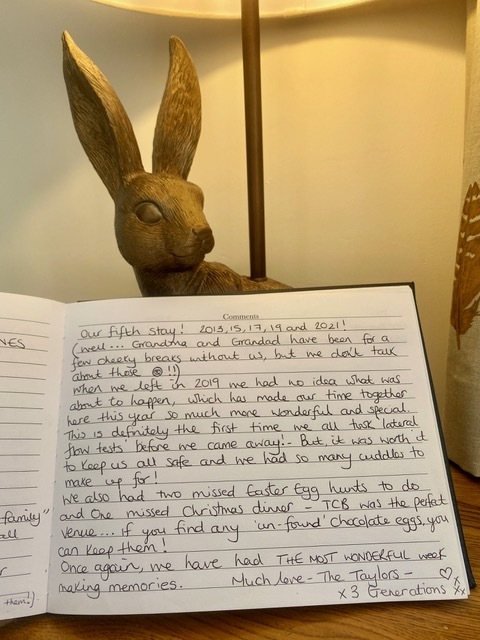 Comments
Our fifth stay! 2013, 15, 17, 19 and 2021!
(well... Grandma and Grandad have been for a
few cheeky breaks without us, but we don't talk
about those ☹ !!)
when we left in 2019 we had no idea what was
about to happen, which has made our time together
here this year so much more wonderful and special.
This is definitely the first time we all took 'lateral
flow tests' before we came away!- But, it was worth it
to keep us all safe and we had so many cuddles to
make up for!
we also had two missed Easter Egg hunts to do
and One missed Christmas dinner - TCB was the perfect
venue... if you find any 'un-found' chocolate eggs, you
can keep them!
Once again, we have had THE MOST WONDERFUL week
making memories. Much love - The Taylors -
x 3 Generations xx
NES
family"
all
r
them!)